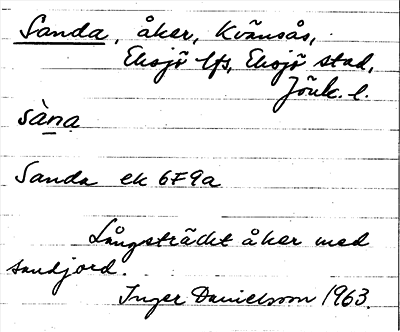 Sanda, åker, Kvänsås,
Eksjö lfs, Eksjö stad,
Jönk. l.
sàna
Sanda ek 6F9a
Långsträckt åker med
sandjord.
Inger Danielsson 1963.